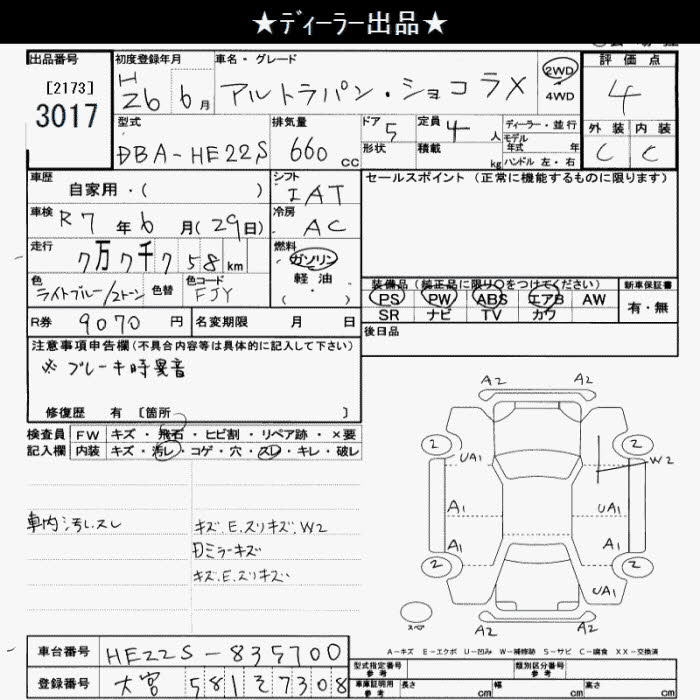 ★ディーラー出品★
出品番号
[2173]
3017
初度登録年月
H
26 6月
車名・グレード
アルトラパン・ショコラX
2WD
4WD
評価点
4
外装 内装
C C
型式
DBA-HE22S
排気量
660 cc
ドア 5
形状
定員 4 人
積載 kg
ディーラー・並行
モデル
年式 年
ハンドル 左・右
車歴
自家用・( )
車検 R7 年 6 月(29日)
走行
7万7千758km
色
ライトブルー/2トーン
色替
色コード
FJY
シフト
IAT
冷房
AC
燃料
ガソリン
軽油
( ・ )
セールスポイント (正常に機能するものに限ります)
装備品 (純正品に限り○をつけてください)
PS PW ABS エアB AW
SR ナビ TV カワ
新車保証書
有・無
後日品
R券 9070 円
名変期限 月 日
注意事項申告欄(不具合内容等は具体的に記入して下さい)
※ ブレーキ時異音
修復歴 有 〔箇所 〕
検査員
記入欄
FW キズ・飛石・ヒビ割・リペア跡・×要
内装 キズ・汚レ・コゲ・穴・スレ・キレ・破レ
車内汚レスレ
キズ.E.スリキズ.W2
ドミラーキズ
キズ.E.スリキズ
A2 A2
2 2
UA1
W2
A1 UA1
A1 A1
2 2
UA1
スペア
A2 A2
A-キズ E-エクボ U-凹み W-補修跡 S-サビ C-腐食 XX-交換済
車台番号 HE22S-835700
登録番号 大宮 581 そ 7308
型式指定番号
参考
類別区分番号
参考
車庫証明用
参考
長さ cm
幅 cm
高さ cm